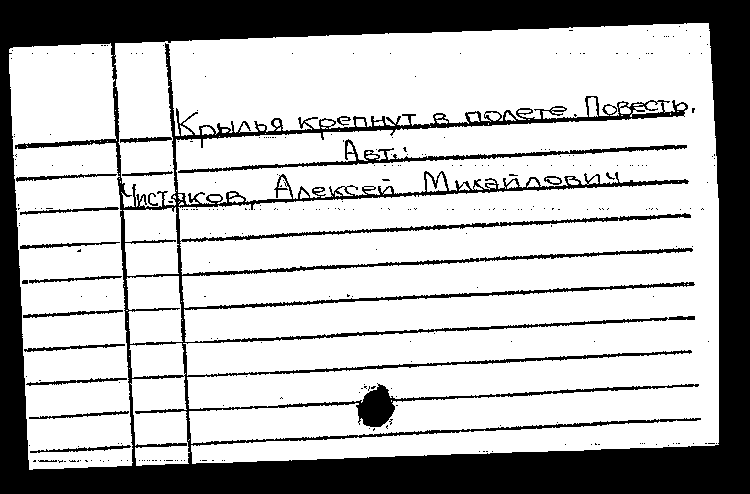 Крылья крепнут в полете. Повесть.
Авт.:
Чистяков, Алексей Михайлович.